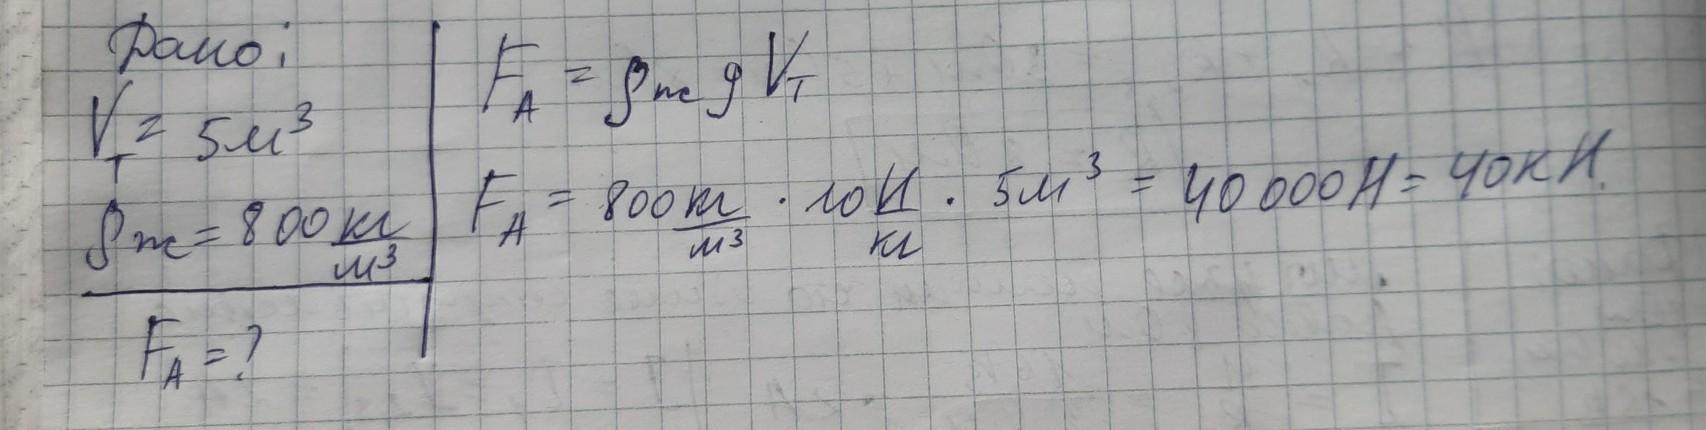 Дано:
V_т = 5 м³
ρ_ж = 800 кг/м³
F_A = ?
F_A = ρ_ж g V_т
F_A = 800 кг/м³ · 10 Н/кг · 5 м³ = 40 000 Н = 40 кН.